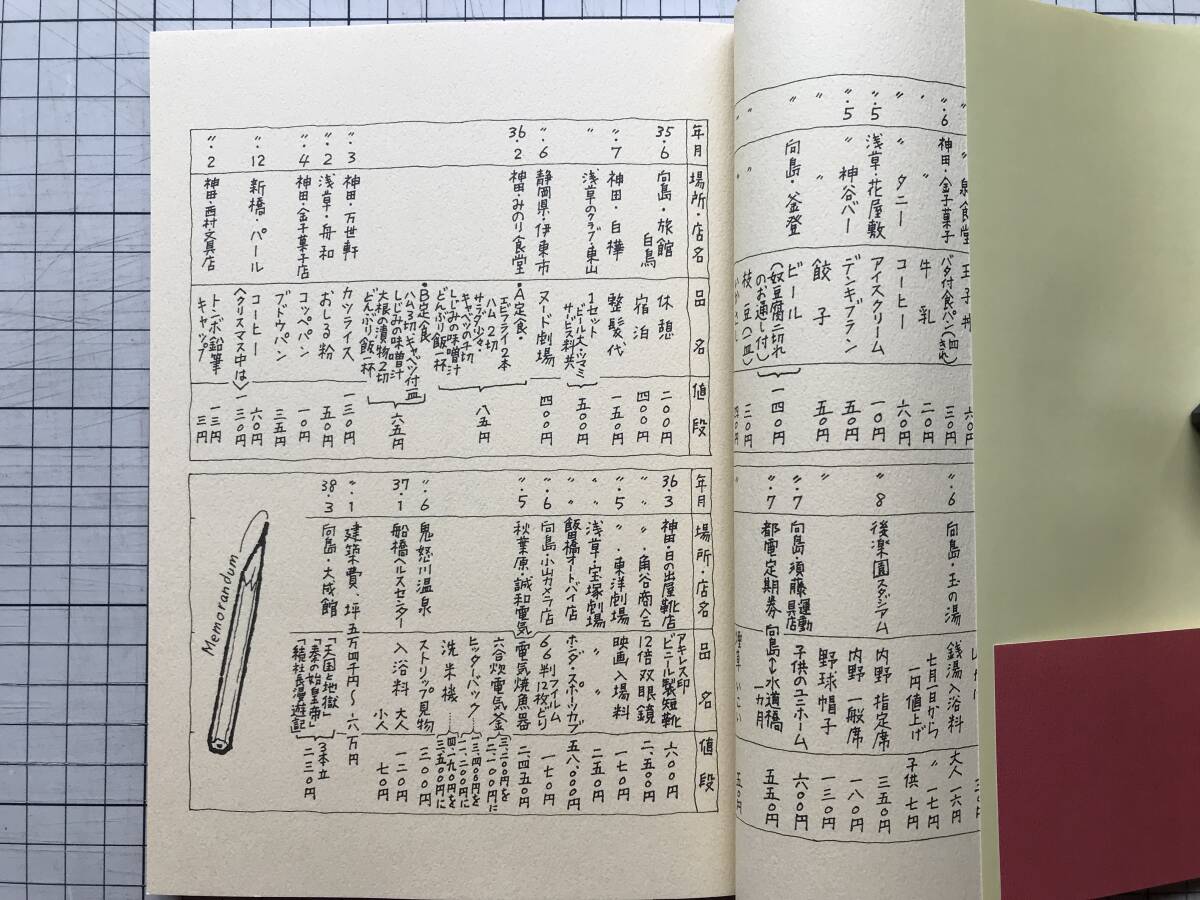 〃 泉食堂 玉子丼 六〇円
〃・6 神田・金子菓子 バタ付食パン(四きれ) 三〇円
〃 〃 牛乳 二〇円
〃 タニー コーヒー 六〇円
〃・5 浅草・花屋敷 アイスクリーム 一〇円
〃・5 〃 神谷バー デンキブラン 五〇円
〃 〃 餃子 五〇円
〃 向島・釜登 ビール 一四〇円
(奴豆腐二切れ
のお通し付)
〃 〃 枝豆(一皿) 三〇円
〃・6 向島・玉の湯 銭湯入浴料 大人 一六円
七月一日から 〃 一七円
一円値上げ 子供 七円
〃 8 後楽園スタジアム 内野 指定席 三五〇円
内野 一般席 一八〇円
〃 野球帽子 一三〇円
〃・7 向島・須藤運動具店 子供のユニホーム 六〇〇円
〃・7 都電定期券 向島↔水道橋 一カ月 五五〇円
年月 場所・店名 品名 値段
35・6 向島・旅館 休憩 二〇〇円
白鳥 宿泊 四〇〇円
〃・7 神田・白樺 整髪代 一五〇円
〃 浅草のクラブ・東山 1セット 五〇〇円
ビール大・ツマミ
サービス料共
〃・6 静岡県・伊東市 ヌード劇場 四〇〇円
36・2 神田・みのり食堂 ・A定食・ 八五円
エビフライ2本
ハム2切
サラダ少々
キャベツの千切
しじみの味噌汁
どんぶり飯一杯
・B定食 六五円
ハム3切・キャベツ付一皿
しじみの味噌汁
大根の漬物2切
どんぶり飯一杯
〃・3 神田・万世軒 カツライス 一三〇円
〃・2 浅草・舟和 おしる粉 五〇円
〃・4 神田・金子菓子店 コッペパン 一〇円
ブドウパン 三五円
〃・12 新橋・パール コーヒー 六〇円
〈クリスマス中は〉 一三〇円
〃・2 神田・西村文具店 トンボ鉛筆 一三円
キャップ 三円
年月 場所・店名 品名 値段
36・3 神田・日の出屋靴店 アキレス印 ビニール製短靴 六〇〇円
〃 〃・角谷商会 12倍双眼鏡 二、五〇〇円
〃・5 〃・東洋劇場 映画入場料 一七〇円
〃 浅草・宝塚劇場 〃 二五〇円
〃 飯田橋オートバイ店 ホンダ・スポーツカブ 五八、〇〇〇円
〃・6 向島・小山カメラ店 6 6判フイルム 12枚どり 一七〇円
〃・5 秋葉原・誠和電気 電気焼魚器 二、四五〇円
六合炊電気釜 三、二〇〇円を 二、一〇〇円に
ヒッターパック…… 三、四〇〇円を 二、二〇〇円に
洗米機…… 四、一九〇円を 三、五〇〇円に
〃・6 鬼怒川温泉 ストリップ見物 三〇〇円
37・1 船橋ヘルスセンター 入浴料 大人 一二〇円
小人 七〇円
〃・1 建築費、坪 五万四千円～六万円
38・3 向島・大成館 「天国と地獄」 3本立 二三〇円
「秦の始皇帝」
「続社長漫遊記」
Memorandum